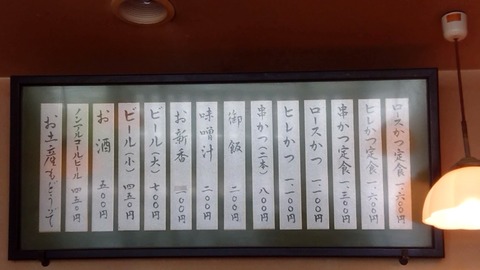 ロースかつ定食 一、六〇〇円
ヒレかつ定食 一、六〇〇円
串かつ定食 一、三〇〇円
ロースかつ 一、一〇〇円
ヒレかつ 一、一〇〇円
串かつ(二本) 八〇〇円
御飯 二〇〇円
味噌汁 二〇〇円
お新香 〇〇円
ビール(大) 七〇〇円
ビール(小) 四五〇円
お酒 五〇〇円
ノンアルコールビール 四五〇円
お土産もどうぞ